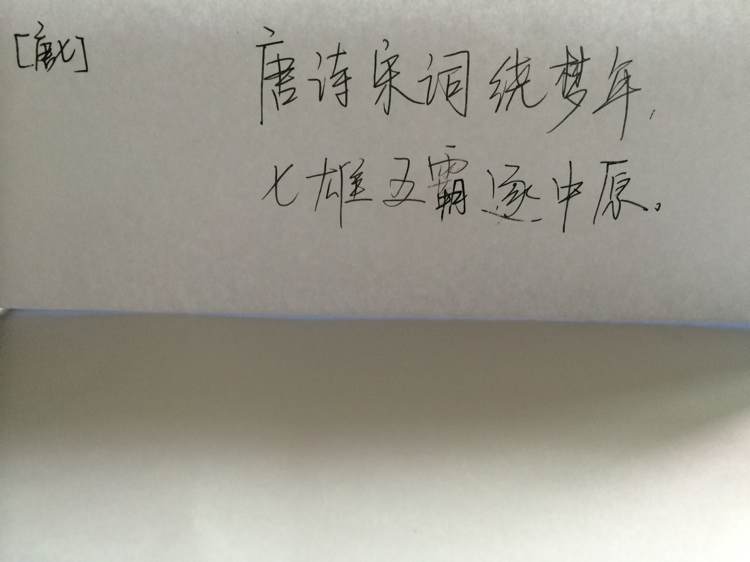 [唐七]
唐诗宋词绕梦年,
七雄五霸逐中原。